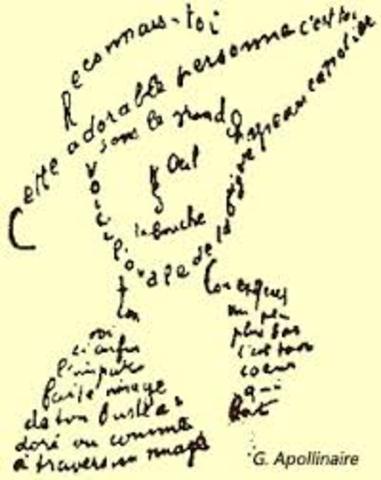 Reconnais-toi
Cette adorable personne c'est toi
sous le grand chapeau canotier
Oeil
la bouche
Voici l'ovale de ta figure
ton
Cou exquis
voi
ci enfin
l'impar
faite image
de ton buste a
doré vu comme
à travers un nuage
un peu
plus bas
c'est ton
coeur
qui
bat
G. Apollinaire